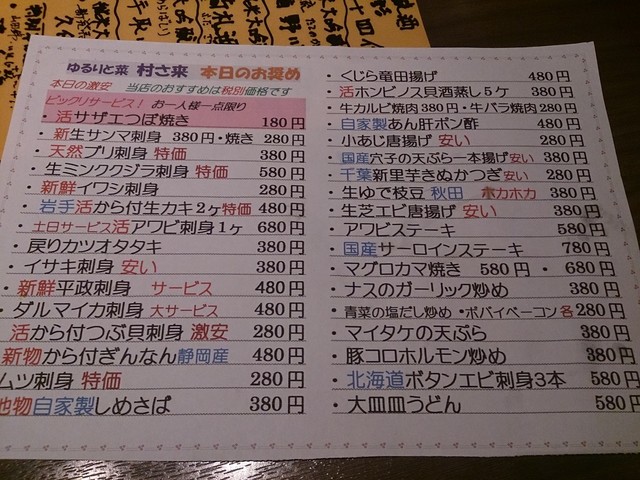 ゆるりと菜 村さ来 本日のお奨め
本日の激安 当店のおすすめは税別価格です
ビックリサービス! お一人様一点限り
・活サザエつぼ焼き 180円
・新生サンマ刺身 380円・焼き 280円
・天然ブリ刺身 特価 380円
・生ミンククジラ刺身 特価 580円
・新鮮イワシ刺身 280円
・岩手活から付生カキ2ヶ特価 480円
・土日サービス活アワビ刺身1ヶ 680円
・戻りカツオタタキ 380円
・イサキ刺身 安い 380円
・新鮮平政刺身 サービス 480円
・ダルマイカ刺身 大サービス 480円
活から付つぶ貝刺身 激安 280円
新物から付ぎんなん静岡産 480円
ムツ刺身 特価 280円
地物自家製しめさば 380円
・くじら竜田揚げ 480円
・活ホンビノス貝酒蒸し5ケ 380円
・牛カルビ焼肉380円・牛バラ焼肉280円
・自家製あん肝ポン酢 480円
・小あじ唐揚げ 安い 280円
・国産穴子の天ぷら一本揚げ安い 380円
・千葉新里芋きぬかつぎ安い 280円
・生ゆで枝豆 秋田 ホカホカ 380円
・生芝エビ唐揚げ 安い 380円
・アワビステーキ 580円
・国産サーロインステーキ 780円
・マグロカマ焼き 580円・680円
・ナスのガーリック炒め 380円
・青菜の塩だし炒め・ポパイベーコン各280円
・マイタケの天ぷら 380円
・豚コロホルモン炒め 380円
・北海道ボタンエビ刺身3本 580円
・大皿皿うどん 580円